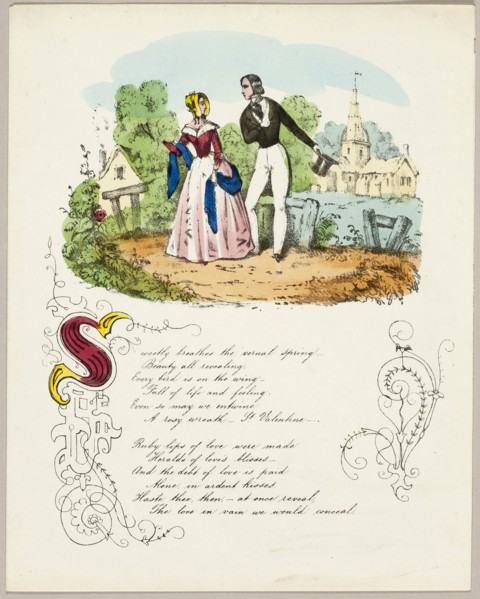 Sweetly breathes the vernal spring—
Beauty all revealing.
Every bird is on the wing—
Full of life and feeling.
Even so may we entwine
A rosy wreath — St Valentine —.
Ruby lips of love were made
Heralds of love's blisses—
And the debt of love is paid
Alone, in ardent kisses.
Haste thee, then, — at once reveal,
The love in vain we would conceal.